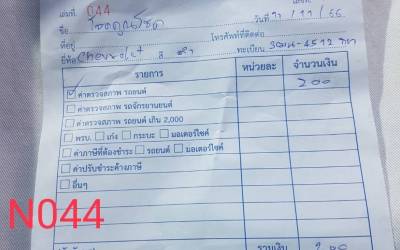 เลขที่ 044
ชื่อ วันที่ / 11 / 66
ที่อยู่ โทรศัพท์ที่ติดต่อ
ยี่ห้อ Chevrolet สี ดำ ทะเบียน 4512
รายการ หน่วยละ จำนวนเงิน
ค่าตรวจสภาพ รถยนต์ 200
ค่าตรวจสภาพ รถจักรยานยนต์
ค่าตรวจสภาพ รถยนต์ เกิน 2,000
พรบ. เก๋ง กระบะ มอเตอร์ไซค์
ค่าภาษีที่ต้องชำระ รถยนต์ มอเตอร์ไซค์
ค่าปรับชำระค้างภาษี
อื่นๆ
N044
รวมเงิน 200